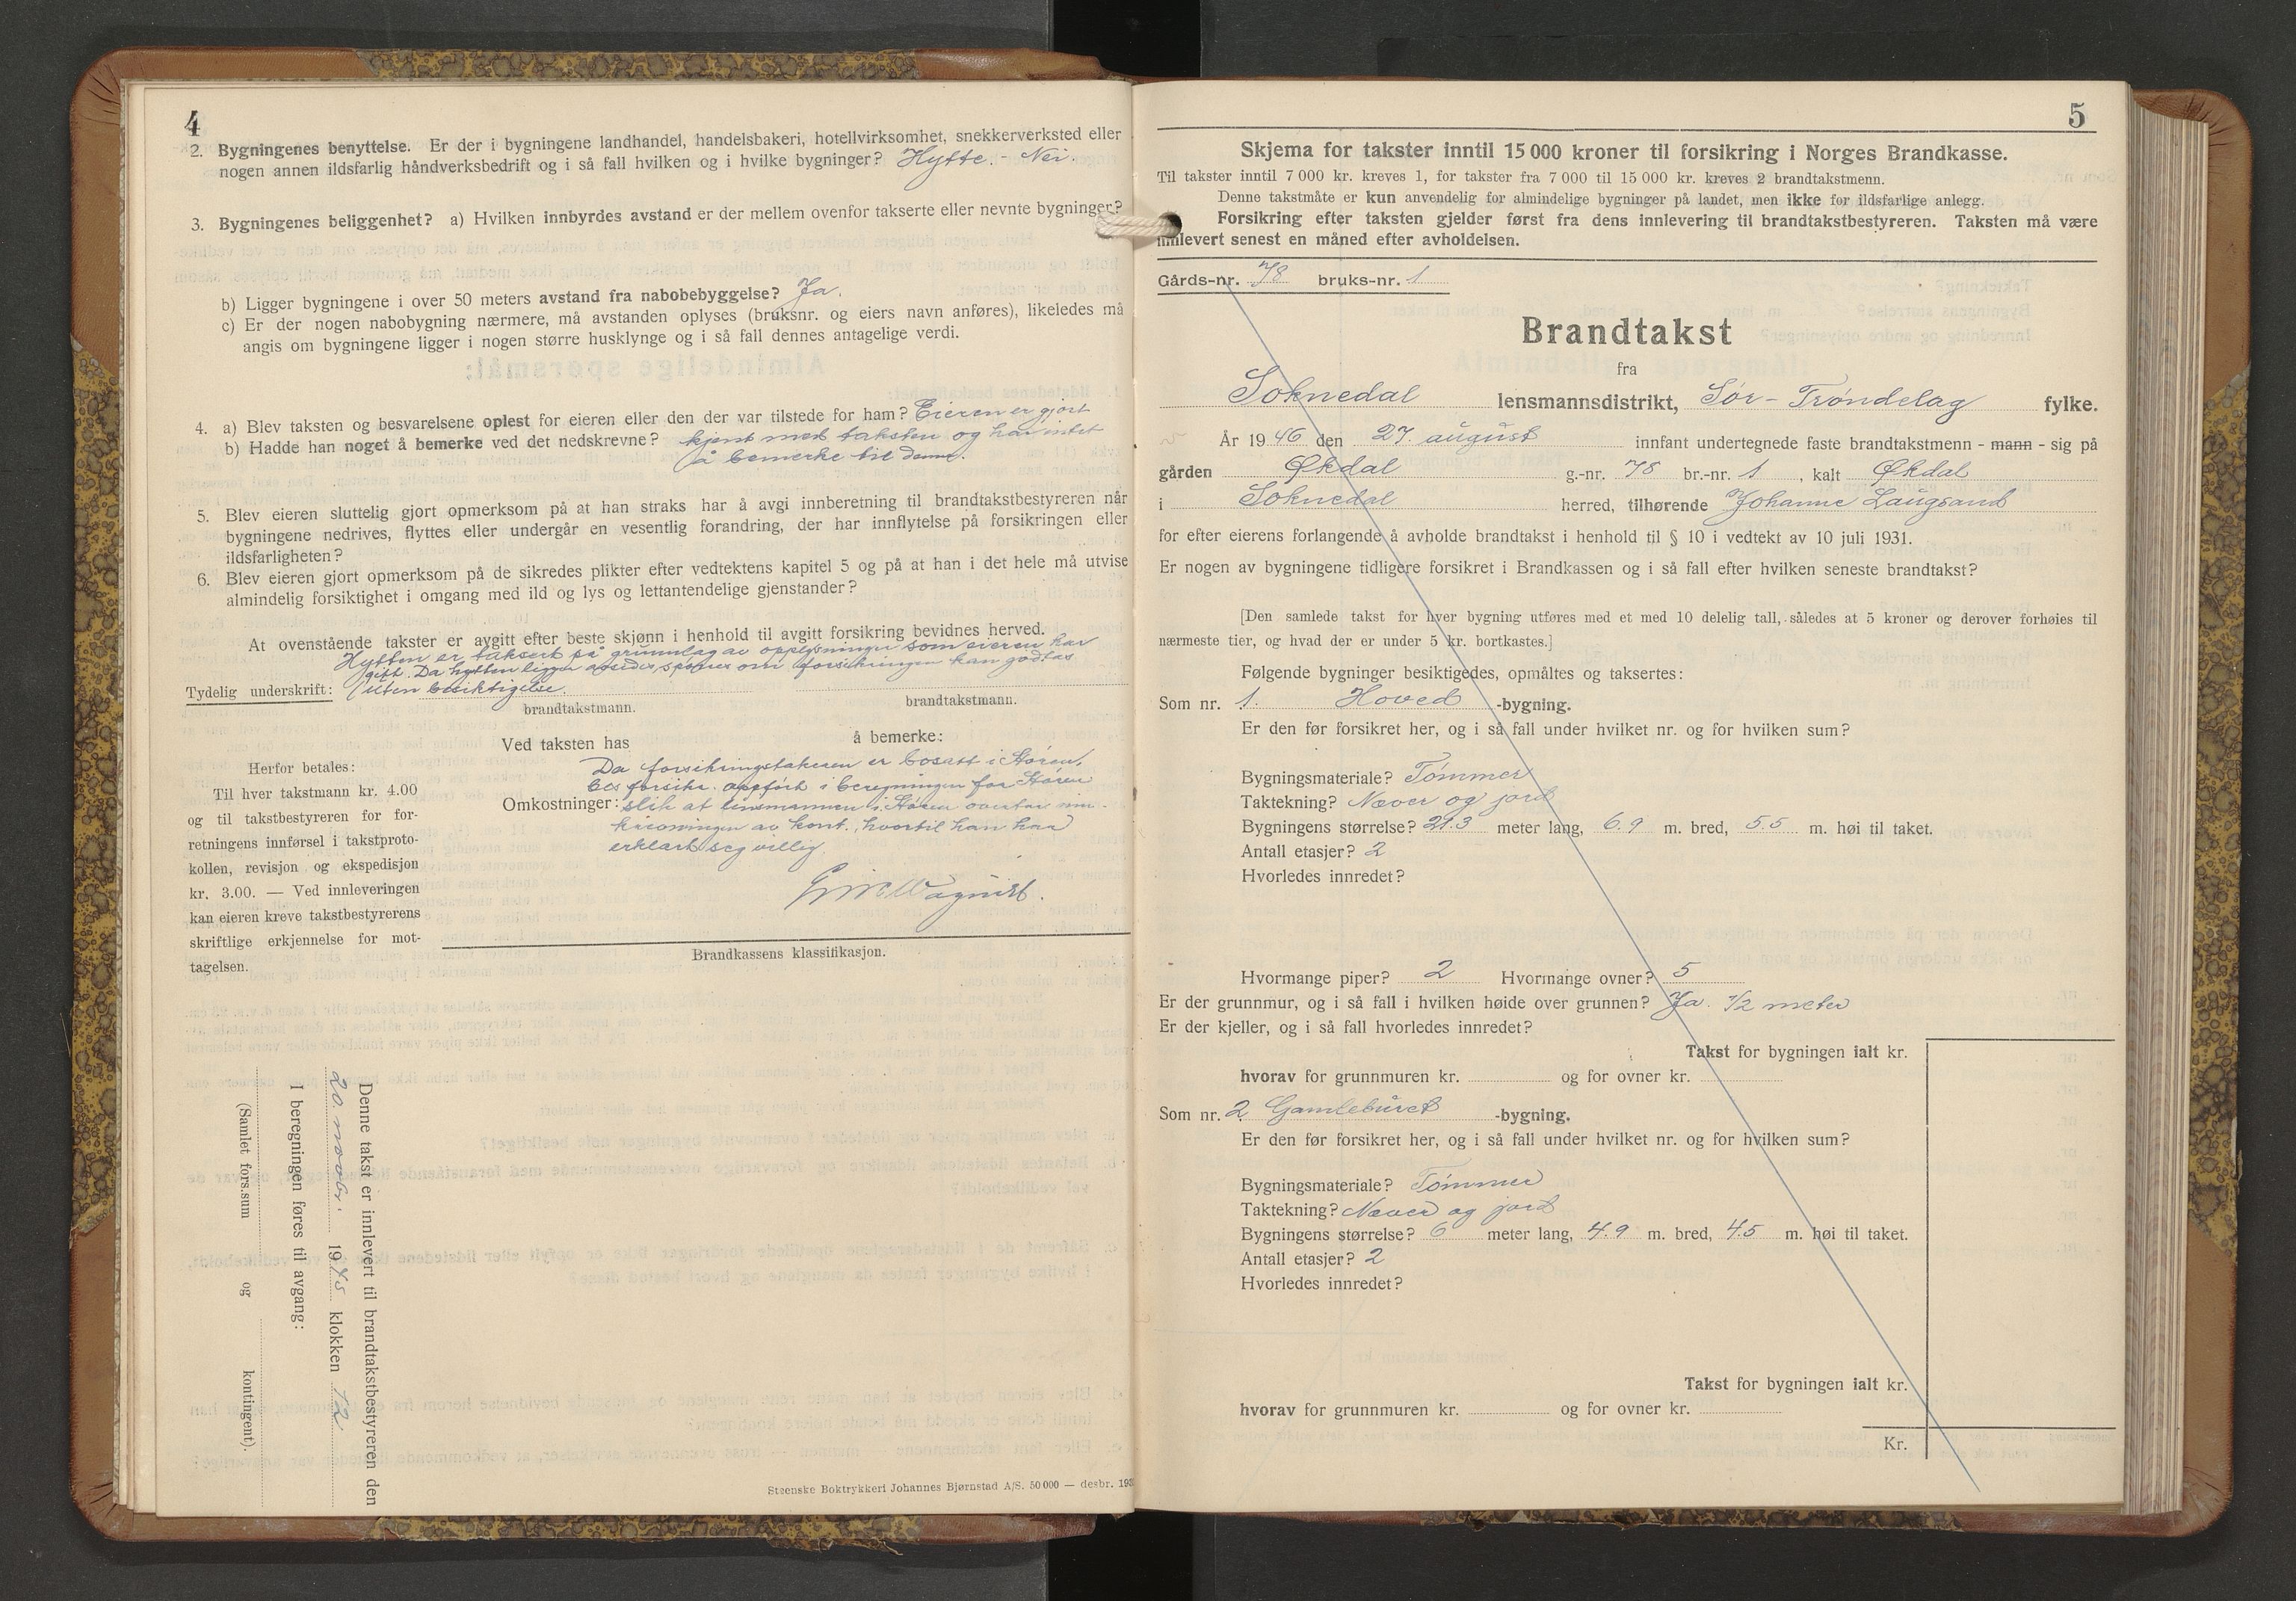 4
2. Bygningenes benyttelse. Er der i bygningene landhandel, handelsbakeri, hotellvirksomhet, snekkerverksted eller
nogen annen ildsfarlig håndverksbedrift og i så fall hvilken og i hvilke bygninger? Hytte. - Nei.
3. Bygningenes beliggenhet? a) Hvilken innbyrdes avstand er der mellem ovenfor takserte eller nevnte bygninger?
b) Ligger bygningene i over 50 meters avstand fra nabobebyggelse? Ja.
c) Er der nogen nabobygning nærmere, må avstanden oplyses (bruksnr. og eiers navn anføres), likeledes må
angis om bygningene ligger i nogen større husklynge og i så fall dennes antagelige verdi.
4. a) Blev taksten og besvarelsene oplest for eieren eller den der var tilstede for ham? Eieren er gjort
b) Hadde han noget å bemerke ved det nedskrevne? kjent med taksten og har intet
å bemerke til denne.
5. Blev eieren sluttelig gjort opmerksom på at han straks har å avgi innberetning til brandtakstbestyreren når
bygningene nedrives, flyttes eller undergår en vesentlig forandring, der har innflytelse på forsikringen eller
ildsfarligheten?
6. Blev eieren gjort opmerksom på de sikredes plikter efter vedtektens kapitel 5 og på at han i det hele må utvise
almindelig forsiktighet i omgang med ild og lys og lettantendelige gjenstander?
At ovenstående takster er avgitt efter beste skjønn i henhold til avgitt forsikring bevidnes herved.
Hytten er taksert på grunnlag av opplysninger som eieren har
gitt. Da hytten ligger avsides, spørres om forsikringen kan godtas
Tydelig underskrift: uten besiktigelse.
brandtakstmann. brandtakstmann.
Ved taksten has å bemerke:
Da forsikringstakeren er bosatt i Støren,
bes forsikr. oppført i beregningen for Støren
Omkostninger: slik at lensmannen i Støren overtar inn-
krevningen av kont., hvortil han har
erklært seg villig.
Herfor betales:
Til hver takstmann kr. 4.00
og til takstbestyreren for for-
retningens innførsel i takstproto-
kollen, revisjon og ekspedisjon
kr. 3.00. — Ved innleveringen
kan eieren kreve takstbestyrerens
skriftlige erkjennelse for mot-
tagelsen.
Brandkassens klassifikasjon.
Denne takst er innlevert til brandtakstbestyreren den
20. novbr. 1945 klokken 12
I beregningen føres til avgang:
(Samlet fors.sum og kontingent).
Steenske Boktrykkeri Johannes Bjørnstad A/S. 50 000 — desbr. 193
5
Skjema for takster inntil 15 000 kroner til forsikring i Norges Brandkasse.
Til takster inntil 7 000 kr. kreves 1, for takster fra 7 000 til 15 000 kr. kreves 2 brandtakstmenn.
Denne takstmåte er kun anvendelig for almindelige bygninger på landet, men ikke for ildsfarlige anlegg.
Forsikring efter taksten gjelder først fra dens innlevering til brandtakstbestyreren. Taksten må være
innlevert senest en måned efter avholdelsen.
Gårds-nr. 78 bruks-nr. 1
Brandtakst
fra
Soknedal lensmannsdistrikt, Sør-Trøndelag fylke.
År 1946 den 27. august innfant undertegnede faste brandtakstmenn - mann - sig på
gården Økdal g.-nr. 78 br.-nr. 1, kalt Økdal
i Soknedal herred, tilhørende Johanne Laugsand
for efter eierens forlangende å avholde brandtakst i henhold til § 10 i vedtekt av 10 juli 1931.
Er nogen av bygningene tidligere forsikret i Brandkassen og i så fall efter hvilken seneste brandtakst?
[Den samlede takst for hver bygning utføres med et med 10 delelig tall, således at 5 kroner og derover forhøies til
nærmeste tier, og hvad der er under 5 kr. bortkastes.]
Følgende bygninger besiktigedes, opmåltes og taksertes:
Som nr. 1. Hoved -bygning.
Er den før forsikret her, og i så fall under hvilket nr. og for hvilken sum?
Bygningsmateriale? Tømmer
Taktekning? Næver og jord
Bygningens størrelse? 21.3 meter lang, 6.9 m. bred, 5.5 m. høi til taket.
Antall etasjer? 2
Hvorledes innredet?
Hvormange piper? 2 Hvormange ovner? 5
Er der grunnmur, og i så fall i hvilken høide over grunnen? Ja. 1/2 meter
Er der kjeller, og i så fall hvorledes innredet?
Takst for bygningen ialt kr.
hvorav for grunnmuren kr. og for ovner kr.
Som nr. 2 Gamleburet -bygning.
Er den før forsikret her, og i så fall under hvilket nr. og for hvilken sum?
Bygningsmateriale? Tømmer
Taktekning? Næver og jord
Bygningens størrelse? 6 meter lang, 4.9 m. bred, 4.5 m. høi til taket.
Antall etasjer? 2
Hvorledes innredet?
Takst for bygningen ialt kr.
hvorav for grunnmuren kr. og for ovner kr.
Kr.